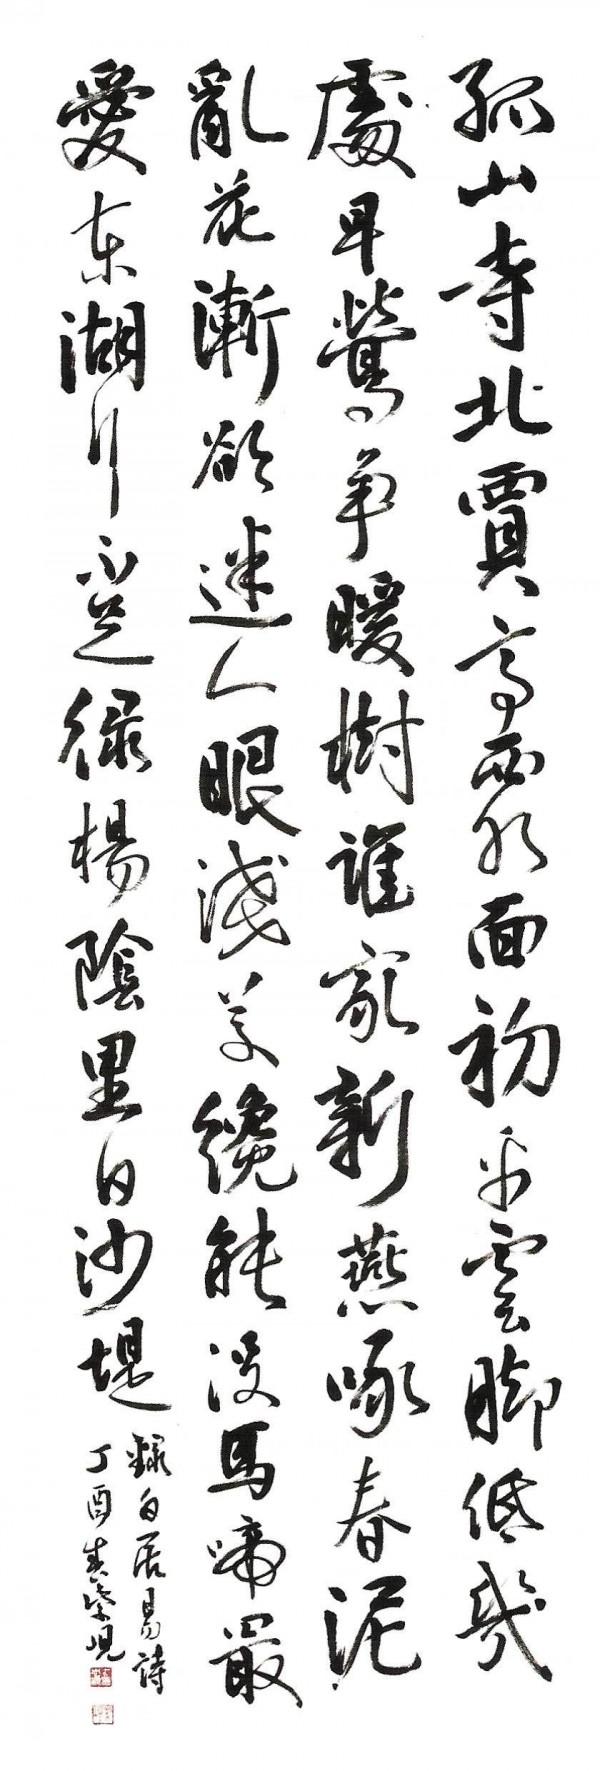 孤山寺北賈亭西水面初平雲脚低幾
處早鶯爭暖樹誰家新燕啄春泥
亂花漸欲迷人眼淺草纔能沒馬啼最
愛東湖行不足綠楊陰里白沙堤
錄白居易詩
丁酉春